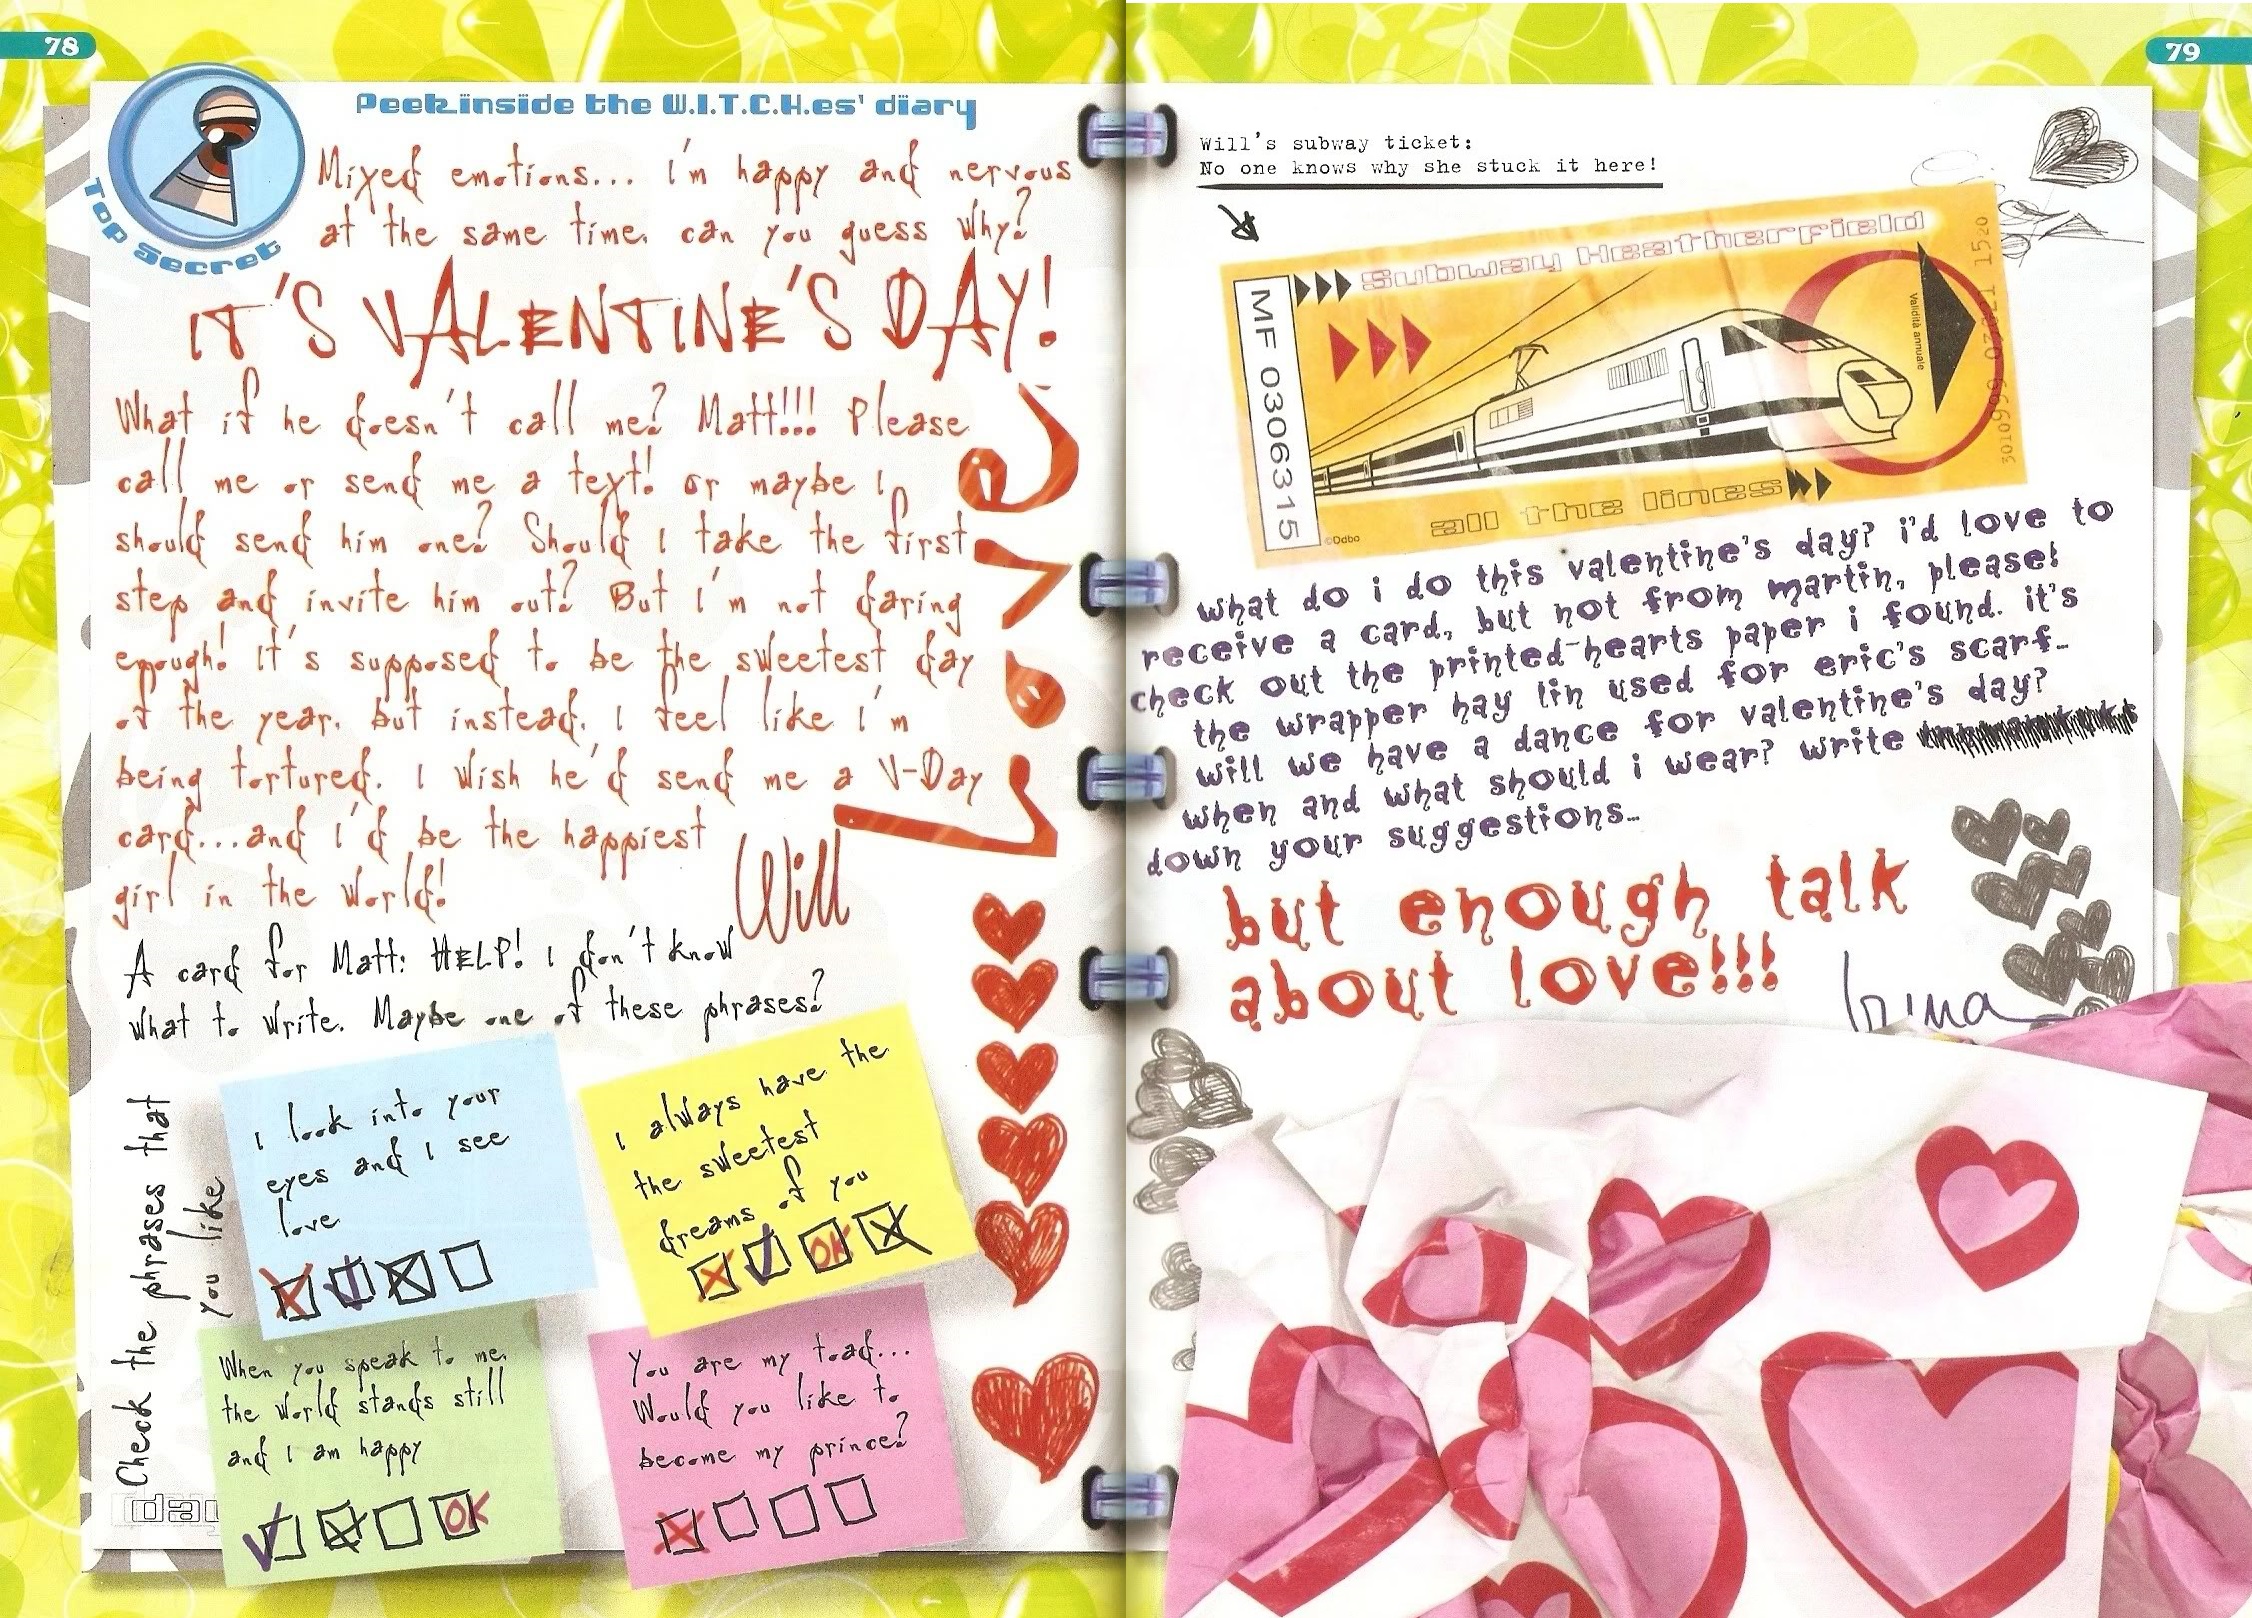 78
Peek inside the W.I.T.C.H.es' diary
Top Secret
Mixed emotions... I'm happy and nervous
at the same time. can you guess why?
IT'S VALENTINE'S DAY!
What if he doesn't call me? Matt!!! Please
call me or send me a text! Or maybe I
should send him one? Should I take the first
step and invite him out? But I'm not daring
enough! It's supposed to be the sweetest day
of the year, but instead, I feel like I'm
being tortured. I wish he'd send me a V-Day
card...and I'd be the happiest
girl in the world!
Will
Love
A card for Matt: HELP! I don't know
what to write. Maybe one of these phrases?
Check the phrases that
you like
I look into your
eyes and I see
love
I always have the
the sweetest
dreams of you
OK
When you speak to me,
the world stands still
and I am happy
OK
You are my toad...
Would you like to
become my prince?
day
79
Will's subway ticket:
No one knows why she stuck it here!
Subway Heatherfield
MF 0306315
Validità annuale
all the lines
©Ddbo
what do i do this valentine's day? i'd love to
receive a card, but not from martin, please!
check out the printed-hearts paper i found. it's
the wrapper hay lin used for eric's scarf..
will we have a dance for valentine's day?
when and what should i wear? write
down your suggestions..
but enough talk
about love!!!
Irma